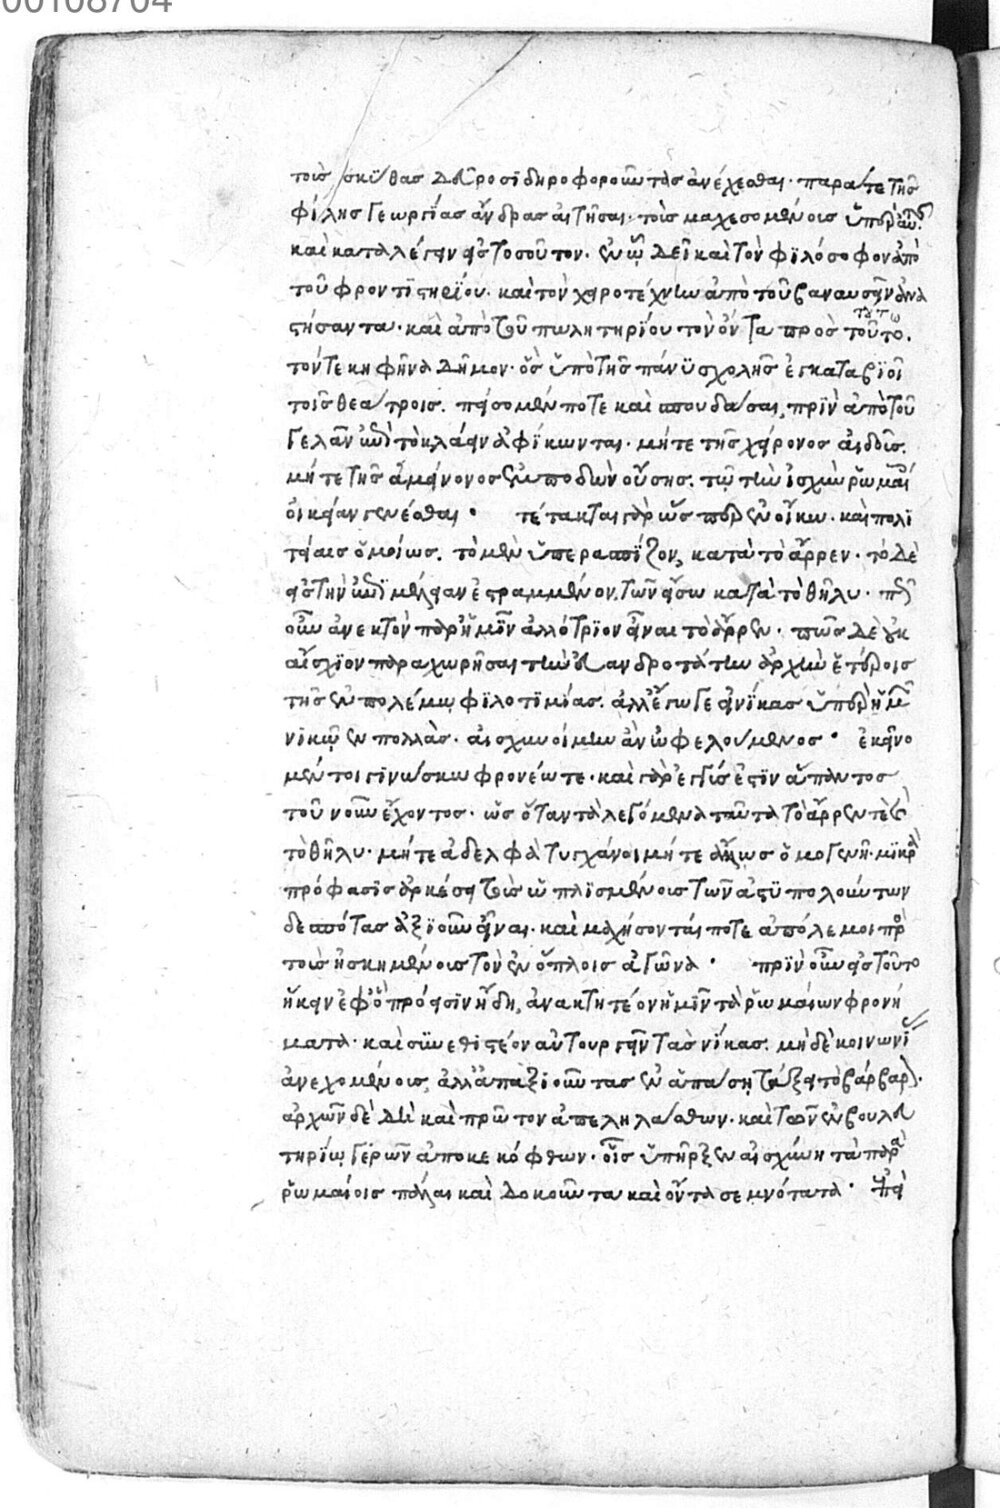 00108704
τοὺς σκύθας δεῦρο σιδηροφοροῦντας ἀνέχεσθαι· παρά τε τῆς
φίλης γεωργίας ἄνδρας αἰτῆσαι· τοὺς μαχεσομένους ὑπὲρ αὐτῆς·
καὶ καταλέγειν εἰς τοσοῦτον· ἐν ᾧ δεῖ καὶ τὸν φιλόσοφον ἀπὸ
τοῦ φροντιστηρίου· καὶ τὸν χειροτέχνην ἀπὸ τοῦ βαναυσεῖν ἀνα
στήσαντα· καὶ ἀπὸ τοῦ πωλητηρίου τὸν ὄντα πρὸς τοῦτο τούτῳ·
τόν τε κηφῆνα δῆμον· ὃς ὑπὸ τῆς πάνυ σχολῆς ἐγκαταβιοῖ
τοῖς θεάτροις· πείσομέν ποτε καὶ σπουδάσαι, πρὶν ἀπὸ τοῦ
γελᾶν ἐπὶ τὸ κλάειν ἀφίκωνται· μήτε τῆς χείρονος αἰδοῦς·
μήτε τῆς ἀμείνονος ἐμποδὼν οὔσης· τῷ τὴν ἰσχὺν ῥωμαί
οἰκείαν γενέσθαι· τέτακται γὰρ ὥσπερ ἐν οἴκῳ· καὶ πολι
τείαις ὁμοίως· τὸ μὲν ὑπερασπίζον, κατὰ τὸ ἄρρεν· τὸ δὲ
εἰς τὴν ἐπιμέλειαν ἐστραμμένον τῶν εἴσω κατὰ τὸ θῆλυ· πῶς
οὖν ἀνεκτὸν παρ' ἡμῖν ἀλλότριον εἶναι τὸ ἄρρεν· πῶς δὲ οὐκ
αἴσχιον παραχωρῆσαι τὴν εὐανδροτάτην ἀρχὴν ἑτέροις
τῆς ἐν πολέμῳ φιλοτιμίας· ἀλλ' ἔγωγε εἰ νίκας ὑπὲρ ἡμῶν
νικῷεν πολλάς· αἰσχυνοίμην ἂν ὠφελούμενος· ἐκεῖνο
μέντοι γινώσκω φρονέω τε· καὶ γὰρ ἐγγύς ἐστιν ἅπαντος
τοῦ νοῦν ἔχοντος· ὡς ὅταν τὰ λεγόμενα ταῦτα τὸ ἄρρεν τε καὶ
τὸ θῆλυ· μήτε ἀδελφὰ τυγχάνοι μήτε ἄλλως ὁμογενῆ· μικρὰ
πρόφασις ἀρκέσει τοὺς ὡπλισμένους τῶν ἀστυπολούντων
δεσπότας ἀξιοῦν εἶναι· καὶ μαχήσονταί ποτε ἀπόλεμοι πρὸς
τοὺς ἠσκημένους τὸν ἐν ὅπλοις ἀγῶνα· πρὶν οὖν εἰς τοῦτο
ἥκειν ἐφ' ὃ πρόεισιν ἤδη, ἀνακτητέον ἡμῖν τὰ ῥωμαίων φρονή
ματα· καὶ συνεθιστέον αὐτουργεῖν τὰς νίκας· μὴ δὲ κοινωνί
ἀνεχομένους, ἀλλ' ἀπαξιοῦντας ἐν ἁπάσῃ τάξει τὸ βάρβαρον·
ἀρχῶν δὲ δεῖ καὶ πρῶτον ἀπεληλάσθων· καὶ τῶν ἐν βουλευ
τηρίῳ γερῶν ἀποκεκόφθων· οἷς ὑπῆρξεν αἰσχύνη τὰ παρὰ
ῥωμαίοις πάλαι καὶ δοκοῦντα καὶ ὄντα σεμνότατα· ἐπεὶ